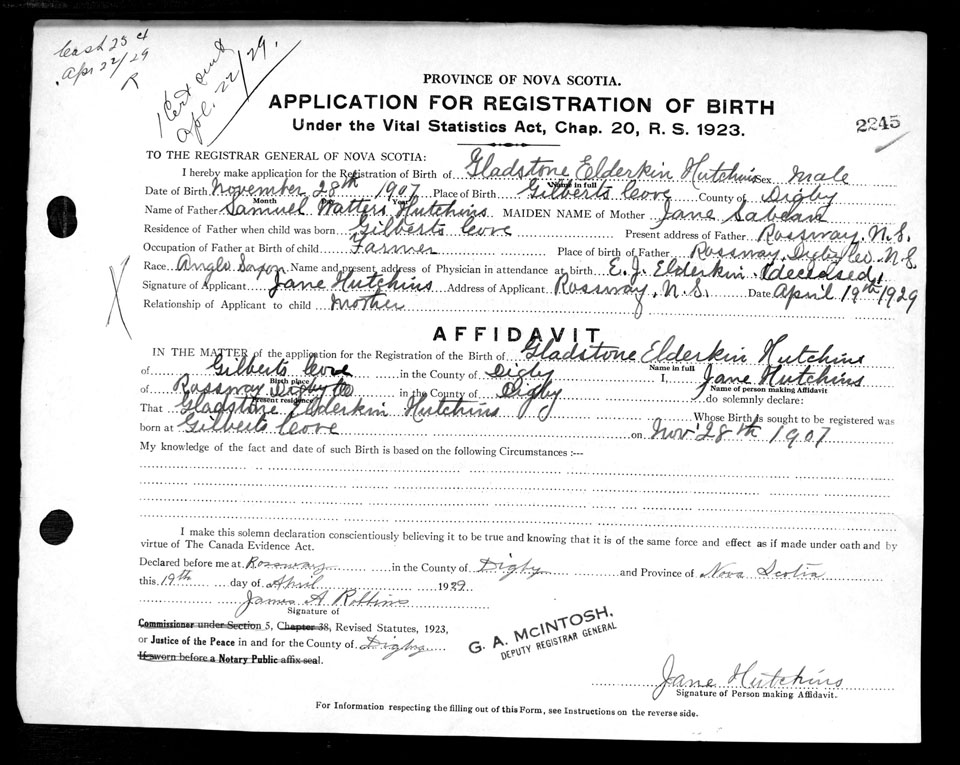 Cash 25 ct
Apr 22/29
R
1 Cert
Apl. 22/29.
PROVINCE OF NOVA SCOTIA.
APPLICATION FOR REGISTRATION OF BIRTH
Under the Vital Statistics Act, Chap. 20, R. S. 1923.
2245
TO THE REGISTRAR GENERAL OF NOVA SCOTIA:
I hereby make application for the Registration of Birth of Gladstone Elderkin Hutchins Sex Male
Name in full
Date of Birth November 28th 1907 Place of Birth Gilberts Cove County of Digby
Month Day Year
Name of Father Samuel Watters Hutchins MAIDEN NAME of Mother Jane Sabean
Residence of Father when child was born Gilberts Cove Present address of Father Rossway, N.S.
Occupation of Father at Birth of child Farmer Place of birth of Father Rossway Digby Co. N.S.
Race Anglo Saxon Name and present address of Physician in attendance at birth E. J. Elderkin (deceased)
Signature of Applicant Jane Hutchins Address of Applicant Rossway, N.S. Date April 19th 1929
Relationship of Applicant to child Mother
AFFIDAVIT
IN THE MATTER of the application for the Registration of the Birth of Gladstone Elderkin Hutchins
Name in full
of Gilberts Cove in the County of Digby I, Jane Hutchins
Birth place Name of person making Affidavit
of Rossway Digby Co in the County of Digby do solemnly declare:
Present residence
That Gladstone Elderkin Hutchins Whose Birth is sought to be registered was
born at Gilberts Cove on Nov' 28th 1907
My knowledge of the fact and date of such Birth is based on the following Circumstances :--
I make this solemn declaration conscientiously believing it to be true and knowing that it is of the same force and effect as if made under oath and by
virtue of The Canada Evidence Act.
Declared before me at Rossway in the County of Digby and Province of Nova Scotia
this 19th day of April 1929.
James A Robbins
Signature of
Commissioner under Section 5, Chapter 38, Revised Statutes, 1923,
or Justice of the Peace in and for the County of Digby
If sworn before a Notary Public affix seal.
G. A. McINTOSH.
DEPUTY REGISTRAR GENERAL
Jane Hutchins
Signature of Person making Affidavit.
For Information respecting the filling out of this Form, see Instructions on the reverse side.